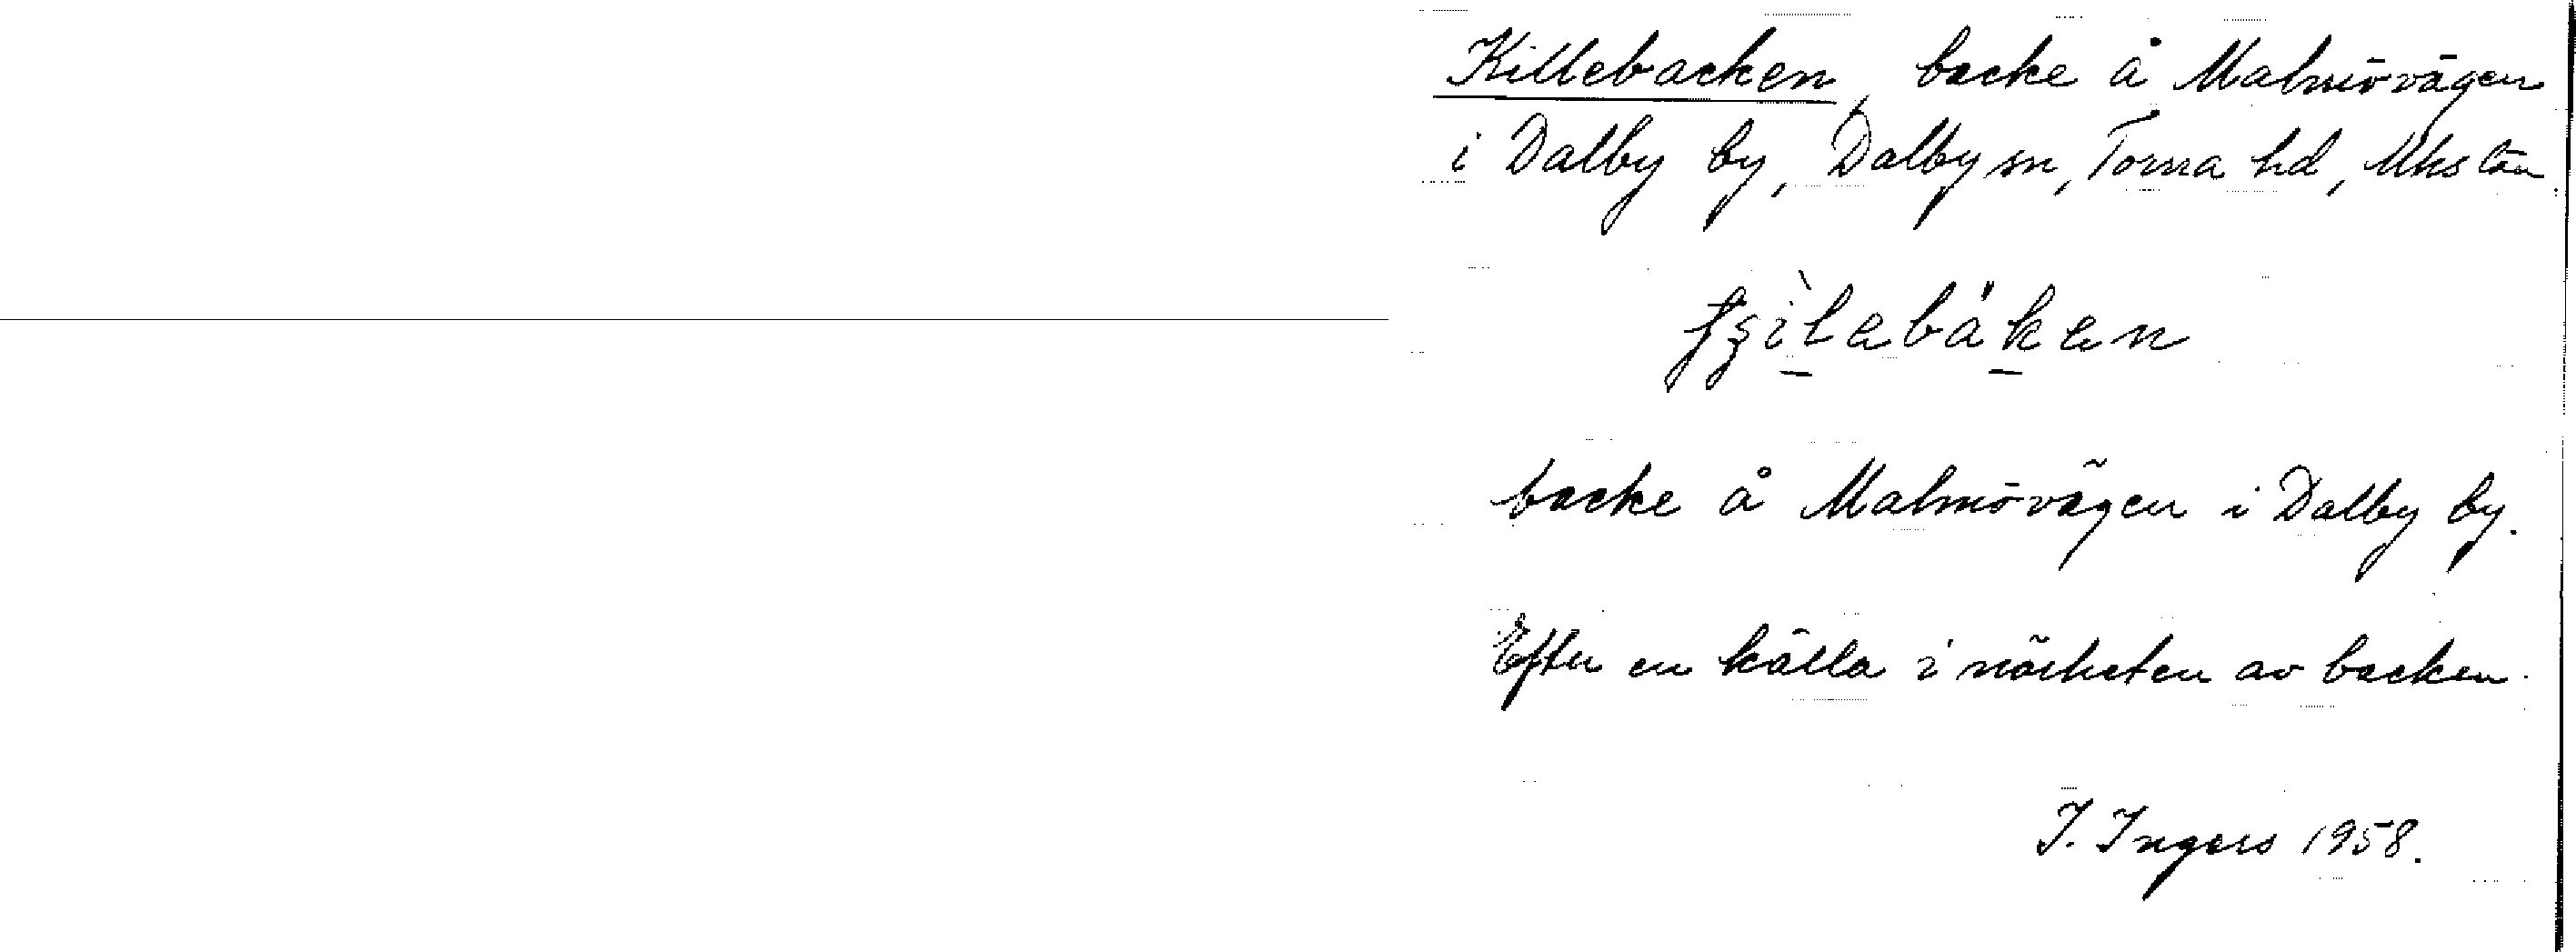 Killebacken, backe å Malmövägen
i Dalby by, Dalby sn, Torna hd, Mhs län.
backe å Malmövägen i Dalby by.
Efter en källa i närheten av backen.
I. Ingers 1958.